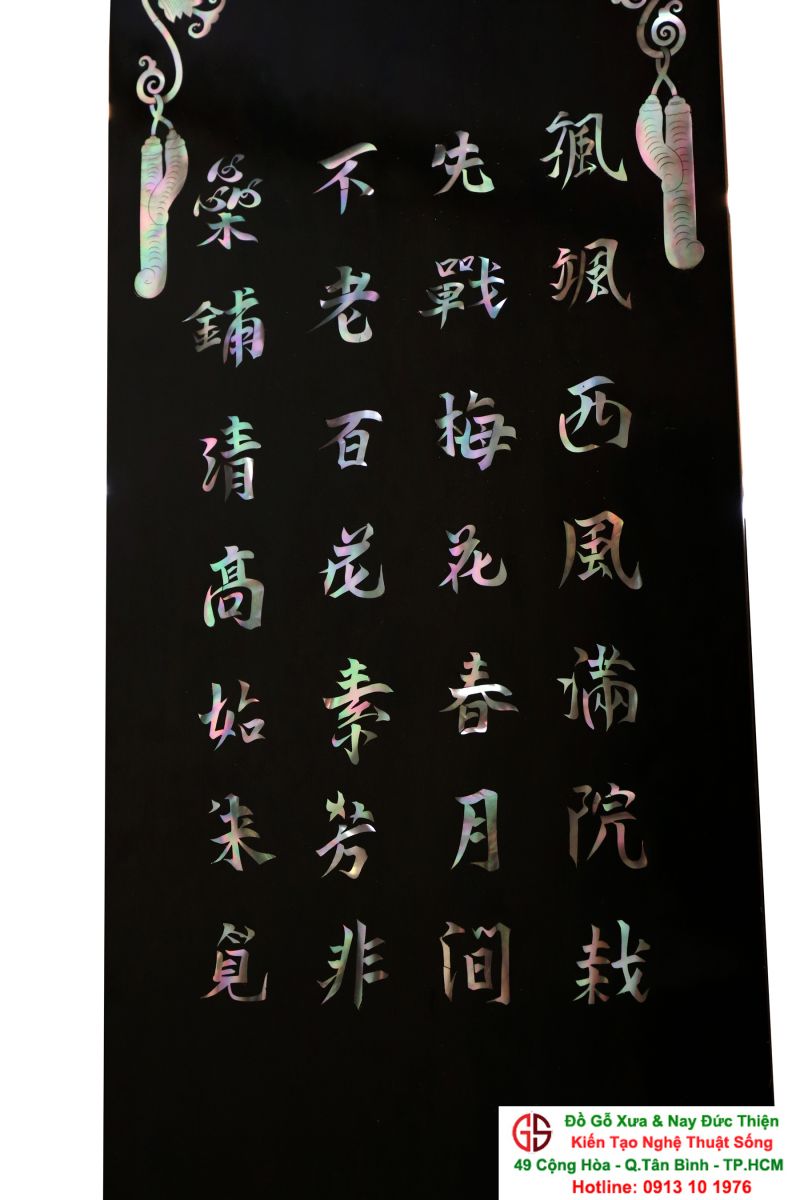 颯颯西風滿院栽
先戰梅花春月澗
不老百茂素芳非
蘂鋪清高始来覓
Đồ Gỗ Xưa & Nay Đức Thiện
Kiến Tạo Nghệ Thuật Sống
49 Cộng Hòa - Q.Tân Bình - TP.HCM
Hotline: 0913 10 1976